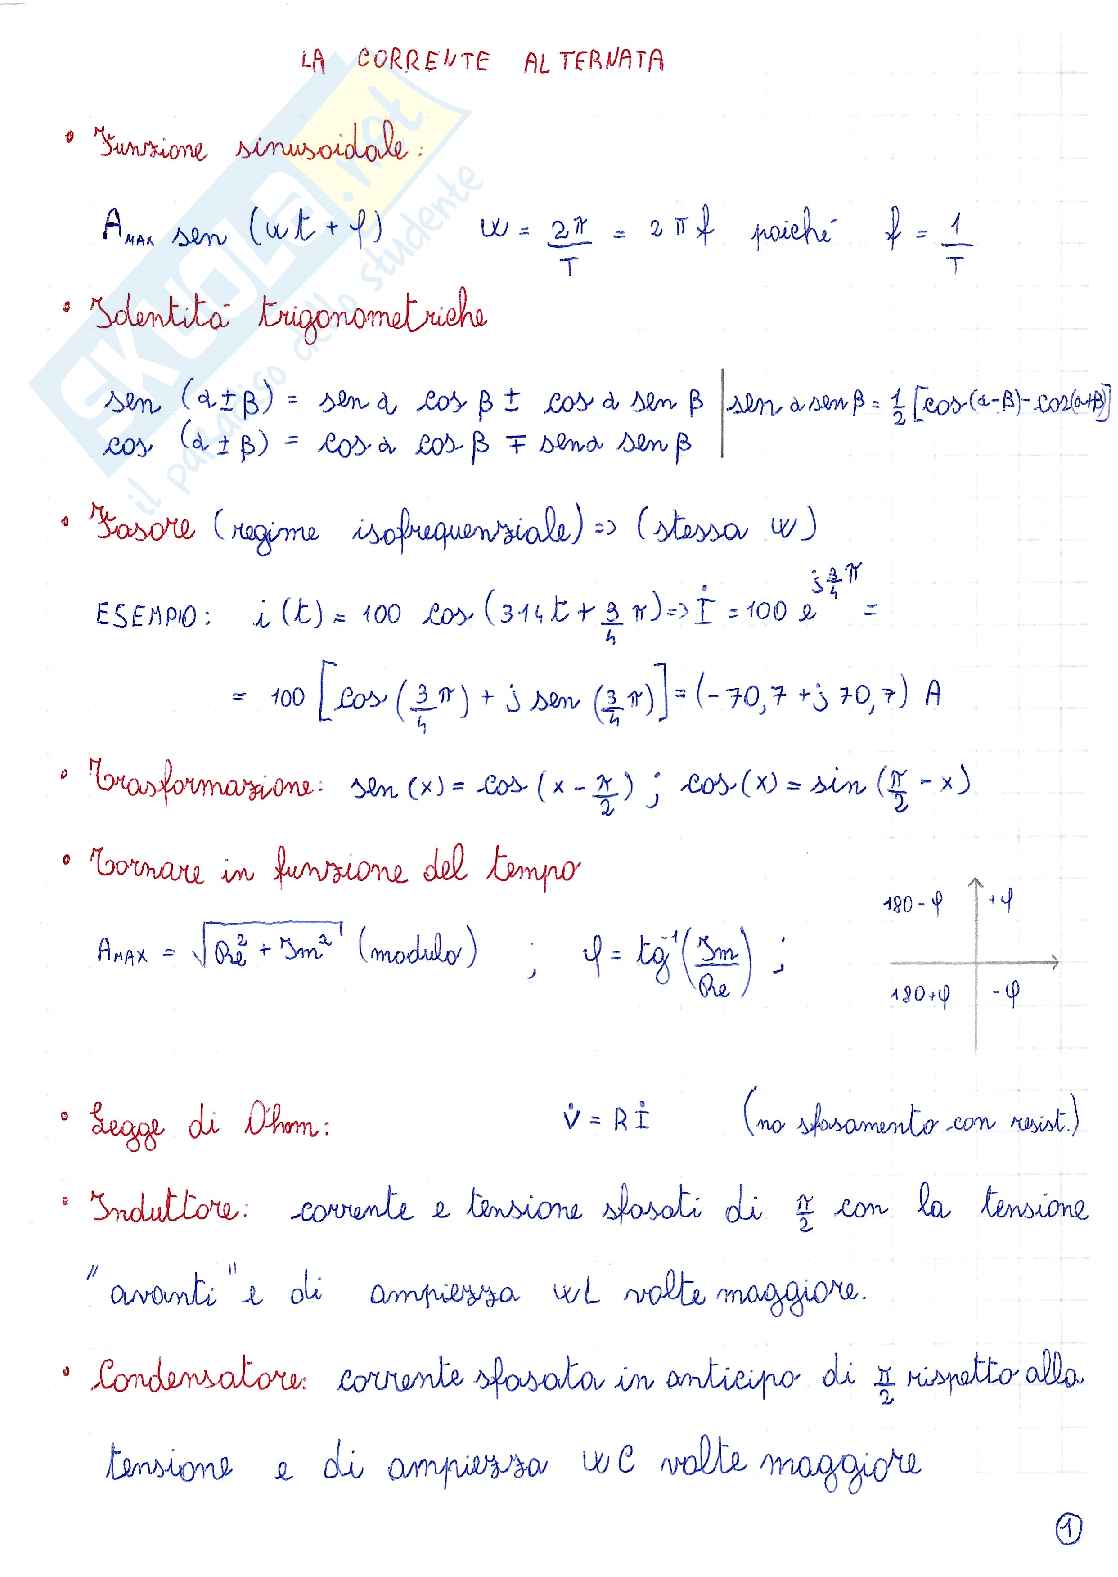 LA CORRENTE ALTERNATA
• Funzione sinusoidale:
A_MAX sen (ωt + φ) ω = 2π/T = 2πf poiché f = 1/T
• Identità trigonometriche
sen (α ± β) = sen α cos β ± cos α sen β | sen α sen β = 1/2 [cos(α-β) - cos(α+β)]
cos (α ± β) = cos α cos β ∓ sen α sen β
• Fasore (regime isofrequenziale) => (stessa ω)
ESEMPIO: i(t) = 100 cos (314t + 3/4 π) => İ = 100 e^(j 3/4 π) =
= 100 [cos (3/4 π) + j sen (3/4 π)] = (-70,7 + j 70,7) A
• Trasformazione: sen(x) = cos (x - π/2) ; cos(x) = sin (π/2 - x)
• Tornare in funzione del tempo
A_MAX = √(Re² + Im²) (modulo) ; φ = tg⁻¹ (Im/Re) ;
180-φ +φ
180+φ -φ
• Legge di Ohm: V̇ = R İ (no sfasamento con resist.)
• Induttore: corrente e tensione sfasati di π/2 con la tensione
"avanti" e di ampiezza ωL volte maggiore.
• Condensatore: corrente sfasata in anticipo di π/2 rispetto alla
tensione e di ampiezza ωC volte maggiore
1
SKUOLA.net
il paradiso dello studente